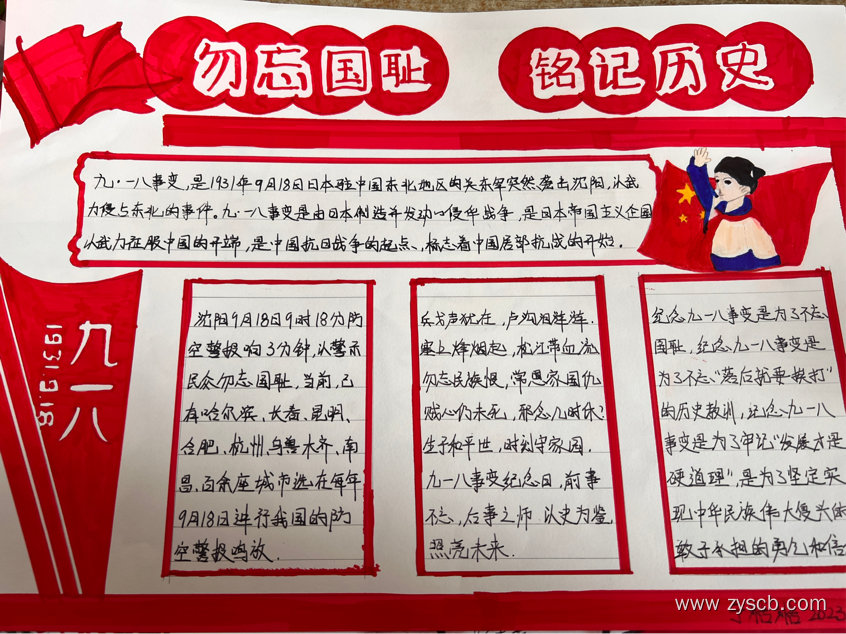 勿忘国耻 铭记历史
九·一八事变,是1931年9月18日日本驻中国东北地区的关东军突然袭击沈阳,以武
力侵占东北的事件。九·一八事变是由日本制造并发动的侵华战争,是日本帝国主义企图
以武力征服中国的开端,是中国抗日战争的起点、标志着中国局部抗战的开始。
九一八
1931.9.18
沈阳9月18日9时18分防
空警报响3分钟,以警示
民众勿忘国耻,当前,已
有哈尔滨、长春、昆明、
合肥、杭州、乌鲁木齐、南
昌、百余座城市选在每年
9月18日进行我国的防
空警报鸣放.
兵戈声犹在,卢沟泪
塞上烽烟起,松江带血流
勿忘民族恨,常思家国仇
贼心仍未死,那念几时休?
生于和平世,时刻守家园.
九一八事变纪念日,前事
不忘,后事之师 以史为鉴
照亮未来.
纪念九一八事变是为了不忘
国耻,纪念九一八事变是
为了不忘“落后就要挨打”
的历史教训,纪念九一八
事变是为了牢记“发展才是
硬道理”,是为了坚定实
现中华民族伟大复兴的
敢于承担的勇气和信
www.zyscb.com
2023